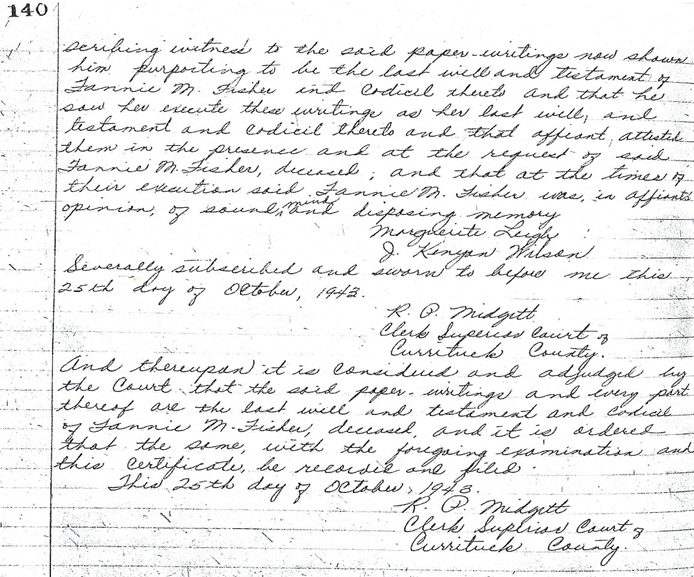 140
scribing witness to the said paper-writings now shown
him purporting to be the last will and testament of
Fannie M. Fisher and Codicil thereto and that he
saw her execute these writings as her last will, and
testament and codicil thereto and that affiant, attested
them in the presence and at the request of said
Fannie M. Fisher, deceased; and that at the times of
their execution said Fannie M. Fisher was, in affiants
opinion, of sound, mind and disposing memory
Marguerite Leigh
J. Kenyon Wilson
Severally subscribed and sworn to before me this
25th day of October, 1943.
R. P. Midgett
Clerk Superior Court of
Currituck County.
And thereupon it is considered and adjudged by
the Court that the said paper-writings and every part
thereof are the last will and testament and codicil
of Fannie M. Fisher, deceased, and it is ordered
that the same, with the foregoing examination and
this certificate, be recorded and filed.
This 25th day of October, 1943.
R. P. Midgett
Clerk Superior Court of
Currituck County.